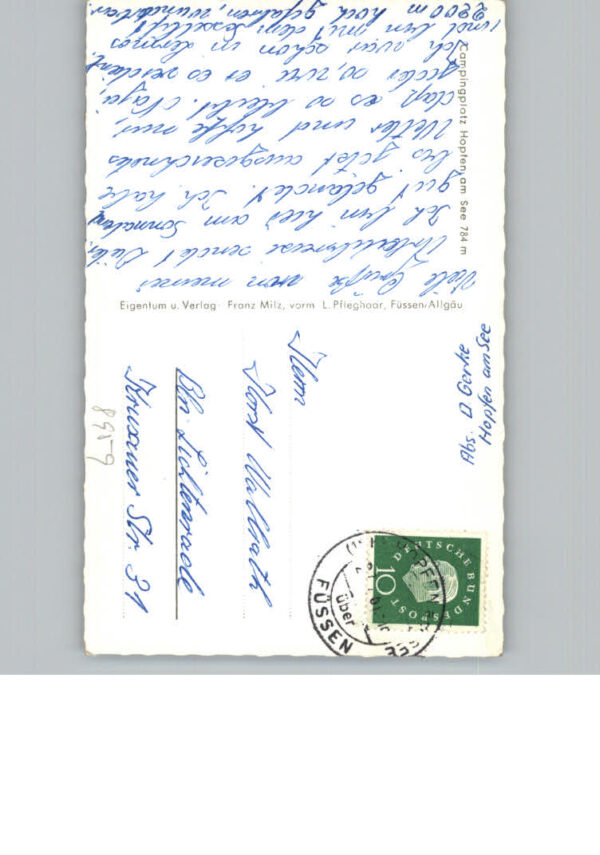 Campingplatz Hopfen am See 784 m
Viele Grüße von meiner
Urlaubsreise sendet Dieter.
Ich bin hier am Sonnabend
gut gelandet. Ich habe
bis jetzt ausgezeichnetes
Wetter und hoffe nur,
daß es so bleibt. Naja,
es so verdient.
Ich war schon in Lermos
und bin mit dem Sessellift
2200 m hoch gefahren, wunderbar
Eigentum u. Verlag Franz Milz, vorm L. Pfleghaar, Füssen/Allgäu
Abs. D Gerke
Hopfen am See
DEUTSCHE BUNDESPOST
10
HOPFEN AM SEE
über
FÜSSEN
Herrn
Horst Wallrath
Bln Lichtenrade
Krusauer Str. 31